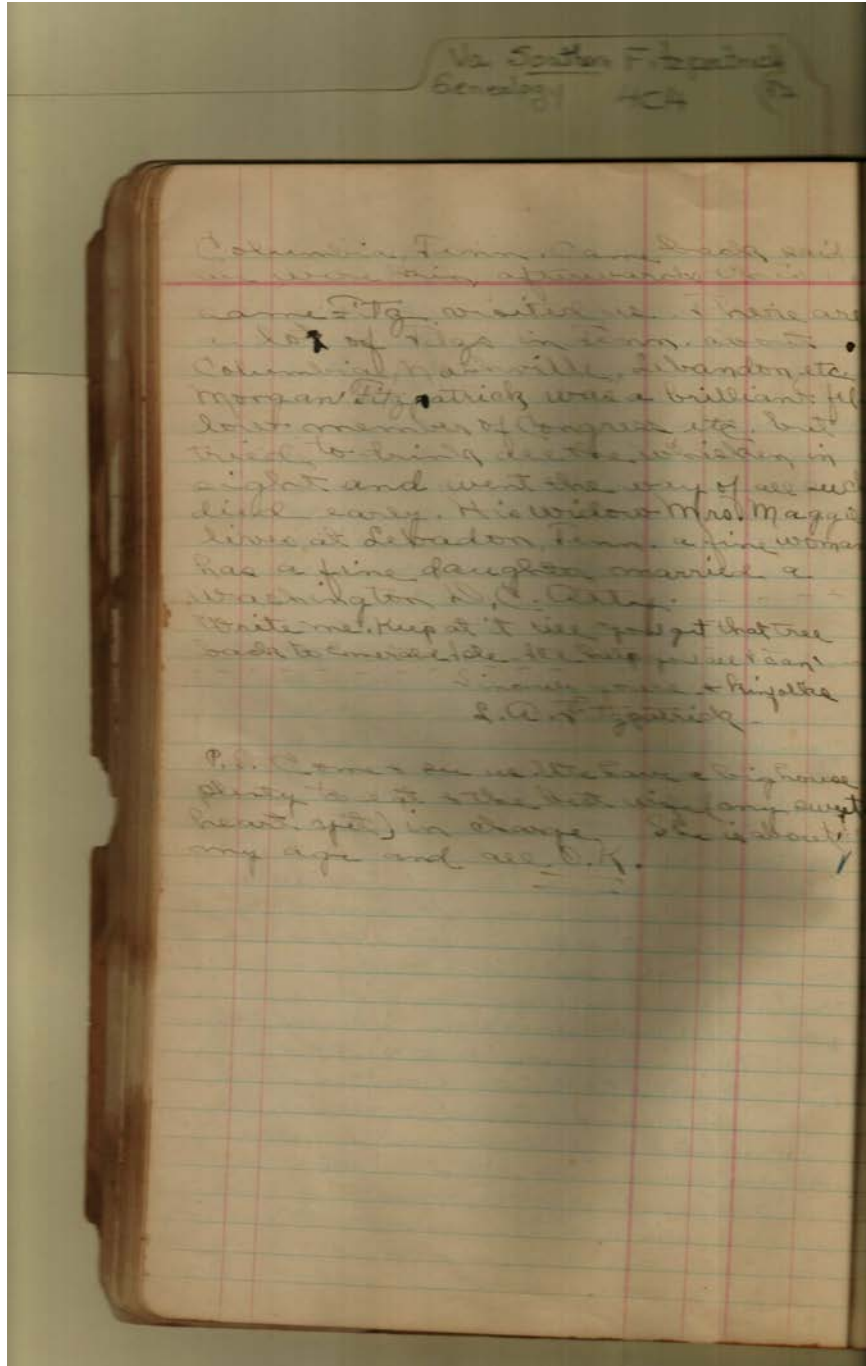 Va. Southern Fitzpatrick
Genealogy 4C4
Columbia, Tenn. Came back said
we were kin, afterwards
same = Fitz visited us. There are
a lot of Fitzs in Tenn. about
Columbia, Nashville, Lebandon, etc
Morgan Fitzpatrick was a brilliant fel
low member of Congress etc. but
tried to drink all the whiskey in
sight and went the way of all suc
died early. His widow Mrs. Maggie
lives at Lebadon, Tenn. a fine woman
has a fine daughter married a
Washington D.C. Atty.
Write me. Keep at it till you get that tree
back to Emerald Isle. you all I can
Sincerely yours & kinfolks
L. A. Fitzpatrick
P.S. Come & see us. We have a big house
plenty to eat & the best wife (my sweet
heart yet) in charge. She is about
my age and all O.K.